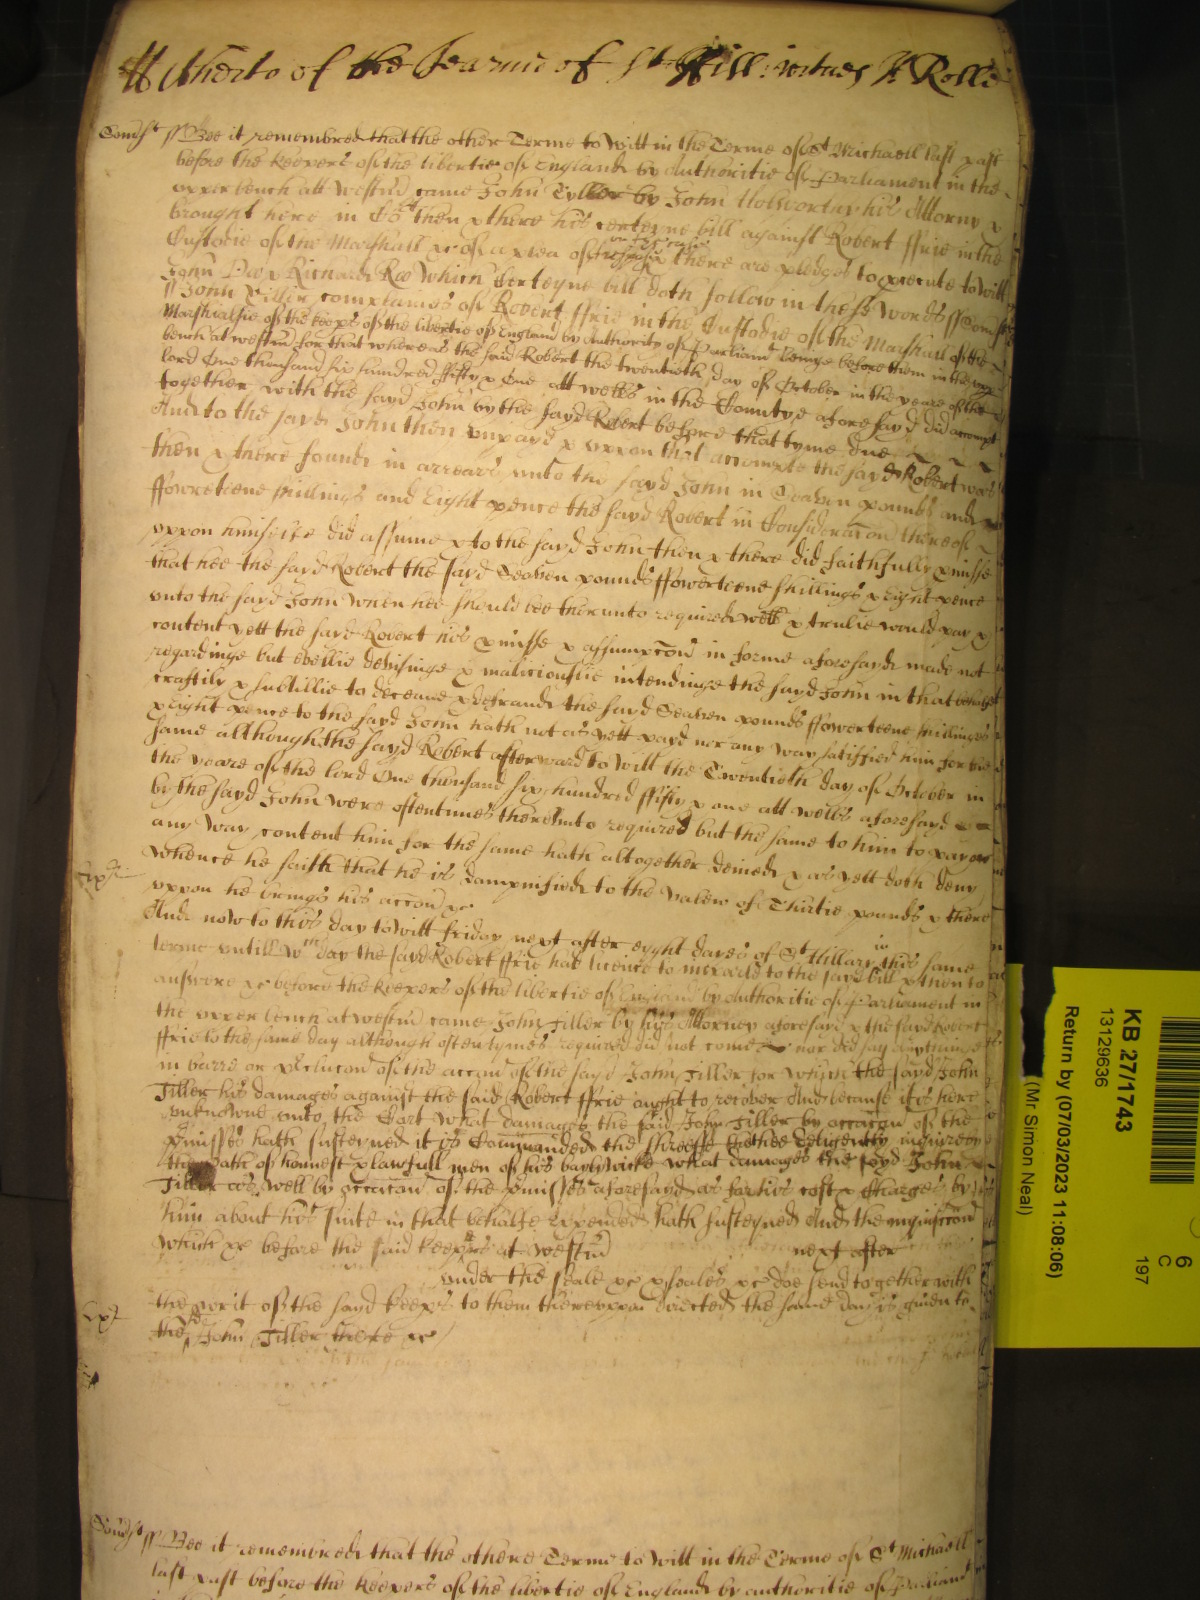 Hitherto of the Tearme of St Hill: witnes H Rolle
Somst ss Bee it remembred that the other Terme to witt in the Terme of St Michaell last past
before the Keepers of the libertie of England by Authoritie of Parliament in the
upper bench att Westm̃ came John Tyller by John his Attorny &
brought here in Cot then & there his certeyne bill against Robert ffrie in the
Custodie of the Marshall &c of a plea of trespasse on the case there are pledges to prosecute to witt
John Doe & Richard Roe Which Certeyne bill doth follow in these words ss Somst
ss John Tiller complaines of Robert ffrie in the Custodie of the Marshall of the
Marshalsie of the keeps of the libertie of England by Authority of Parliamt beinge before them in the upp
bench at westm̃ for that whereas the said Robert the twentieth day of October in the yeare of the
lord One thousand six hundred ffifty & One att Wells in the Countye aforesayd did accompt
together with the sayd John by the sayd Robert before that tyme due
And to the sayd John then unpayd & uppon that accompte the sayd Robert was
then & there found in arreares unto the sayd John in Seaven pounds and
ffowreteene shillings and Eight pence the sayd Robert in Consideracon thereof
uppon himselfe did assume & to the sayd John then & there did faithfully pmisse
that hee the sayd Robert the sayd Seaven pounds ffowerteene shillings & Eight pence
unto the sayd John when hee should bee therunto required well & trulie would pay &
content yett the sayd Robert his pmisse & assumpcon in forme aforesayd made not
regardinge but devisinge & maliciouslie intendinge the sayd John in that behalfe
craftily & subtillie to deceave & defraude the sayd Seaven pounds ffowerteene shillings
& Eight pence to the sayd John hath not as yett payd nor any way satisfied him for the
same allthough the sayd Robert afterward to Witt the Twentieth day of October in
the yeare of the lord One thousand six hundred ffifty & one att Wells aforesayd
by the sayd John were oftentimes thereunto required but the same to him to pay or
any way content him for the same hath altogether denied & as yett doth deny
whence he saith that he is dampnified to the valew of Thirtie pounds & there
uppon he brings his accon &c
And now to this day to witt friday next after eyght dayes of St Hillary in this same
terme untill wch day the sayd Robert ffrie had licence to imparle to the sayd bill & then to
answere &c before the Keepers of the libertie of England by Authoritie of Parliament in
the upper bench at westm̃ came John Tiller by his Attorney aforesayd & the sayd Robert
ffrie to the same day although oftentymes required did not come nor did say anythinge
in barre or pclucon of the accon of the sayd John Tiller for which the sayd John
Tiller his damages against the said Robert ffrie ought to recover And because it is here
unknowne unto the Cort What damages the said John Tiller by occacon of the
pmisses hath susteyned it is Commanded the Shreeffe inquire by
the oath of honnest & lawfull men of his baylywicke what damages the sayd John
Tiller as well by occacon of the pmisses aforesayd as for his costs & Charges by
him about his suite in that behalfe expended hath susteyned And the inquisicon
which &c before the said keeps at westm̃ next after
under the seale &c & seales &c doe send together with
the writ of the sayd keeps to them thereuppon directed the same day is given to
the sd John Tiller there &c
Somst ss Bee it remembred that the othere Terme to Witt in the Terme of St Michaell
last past before the Keepers of the libertie of England by authoritie of Parliamt
KB 27/1743
13129636
Return by (07/03/2023 11:08:06)
(Mr Simon Neal)
6
C
197